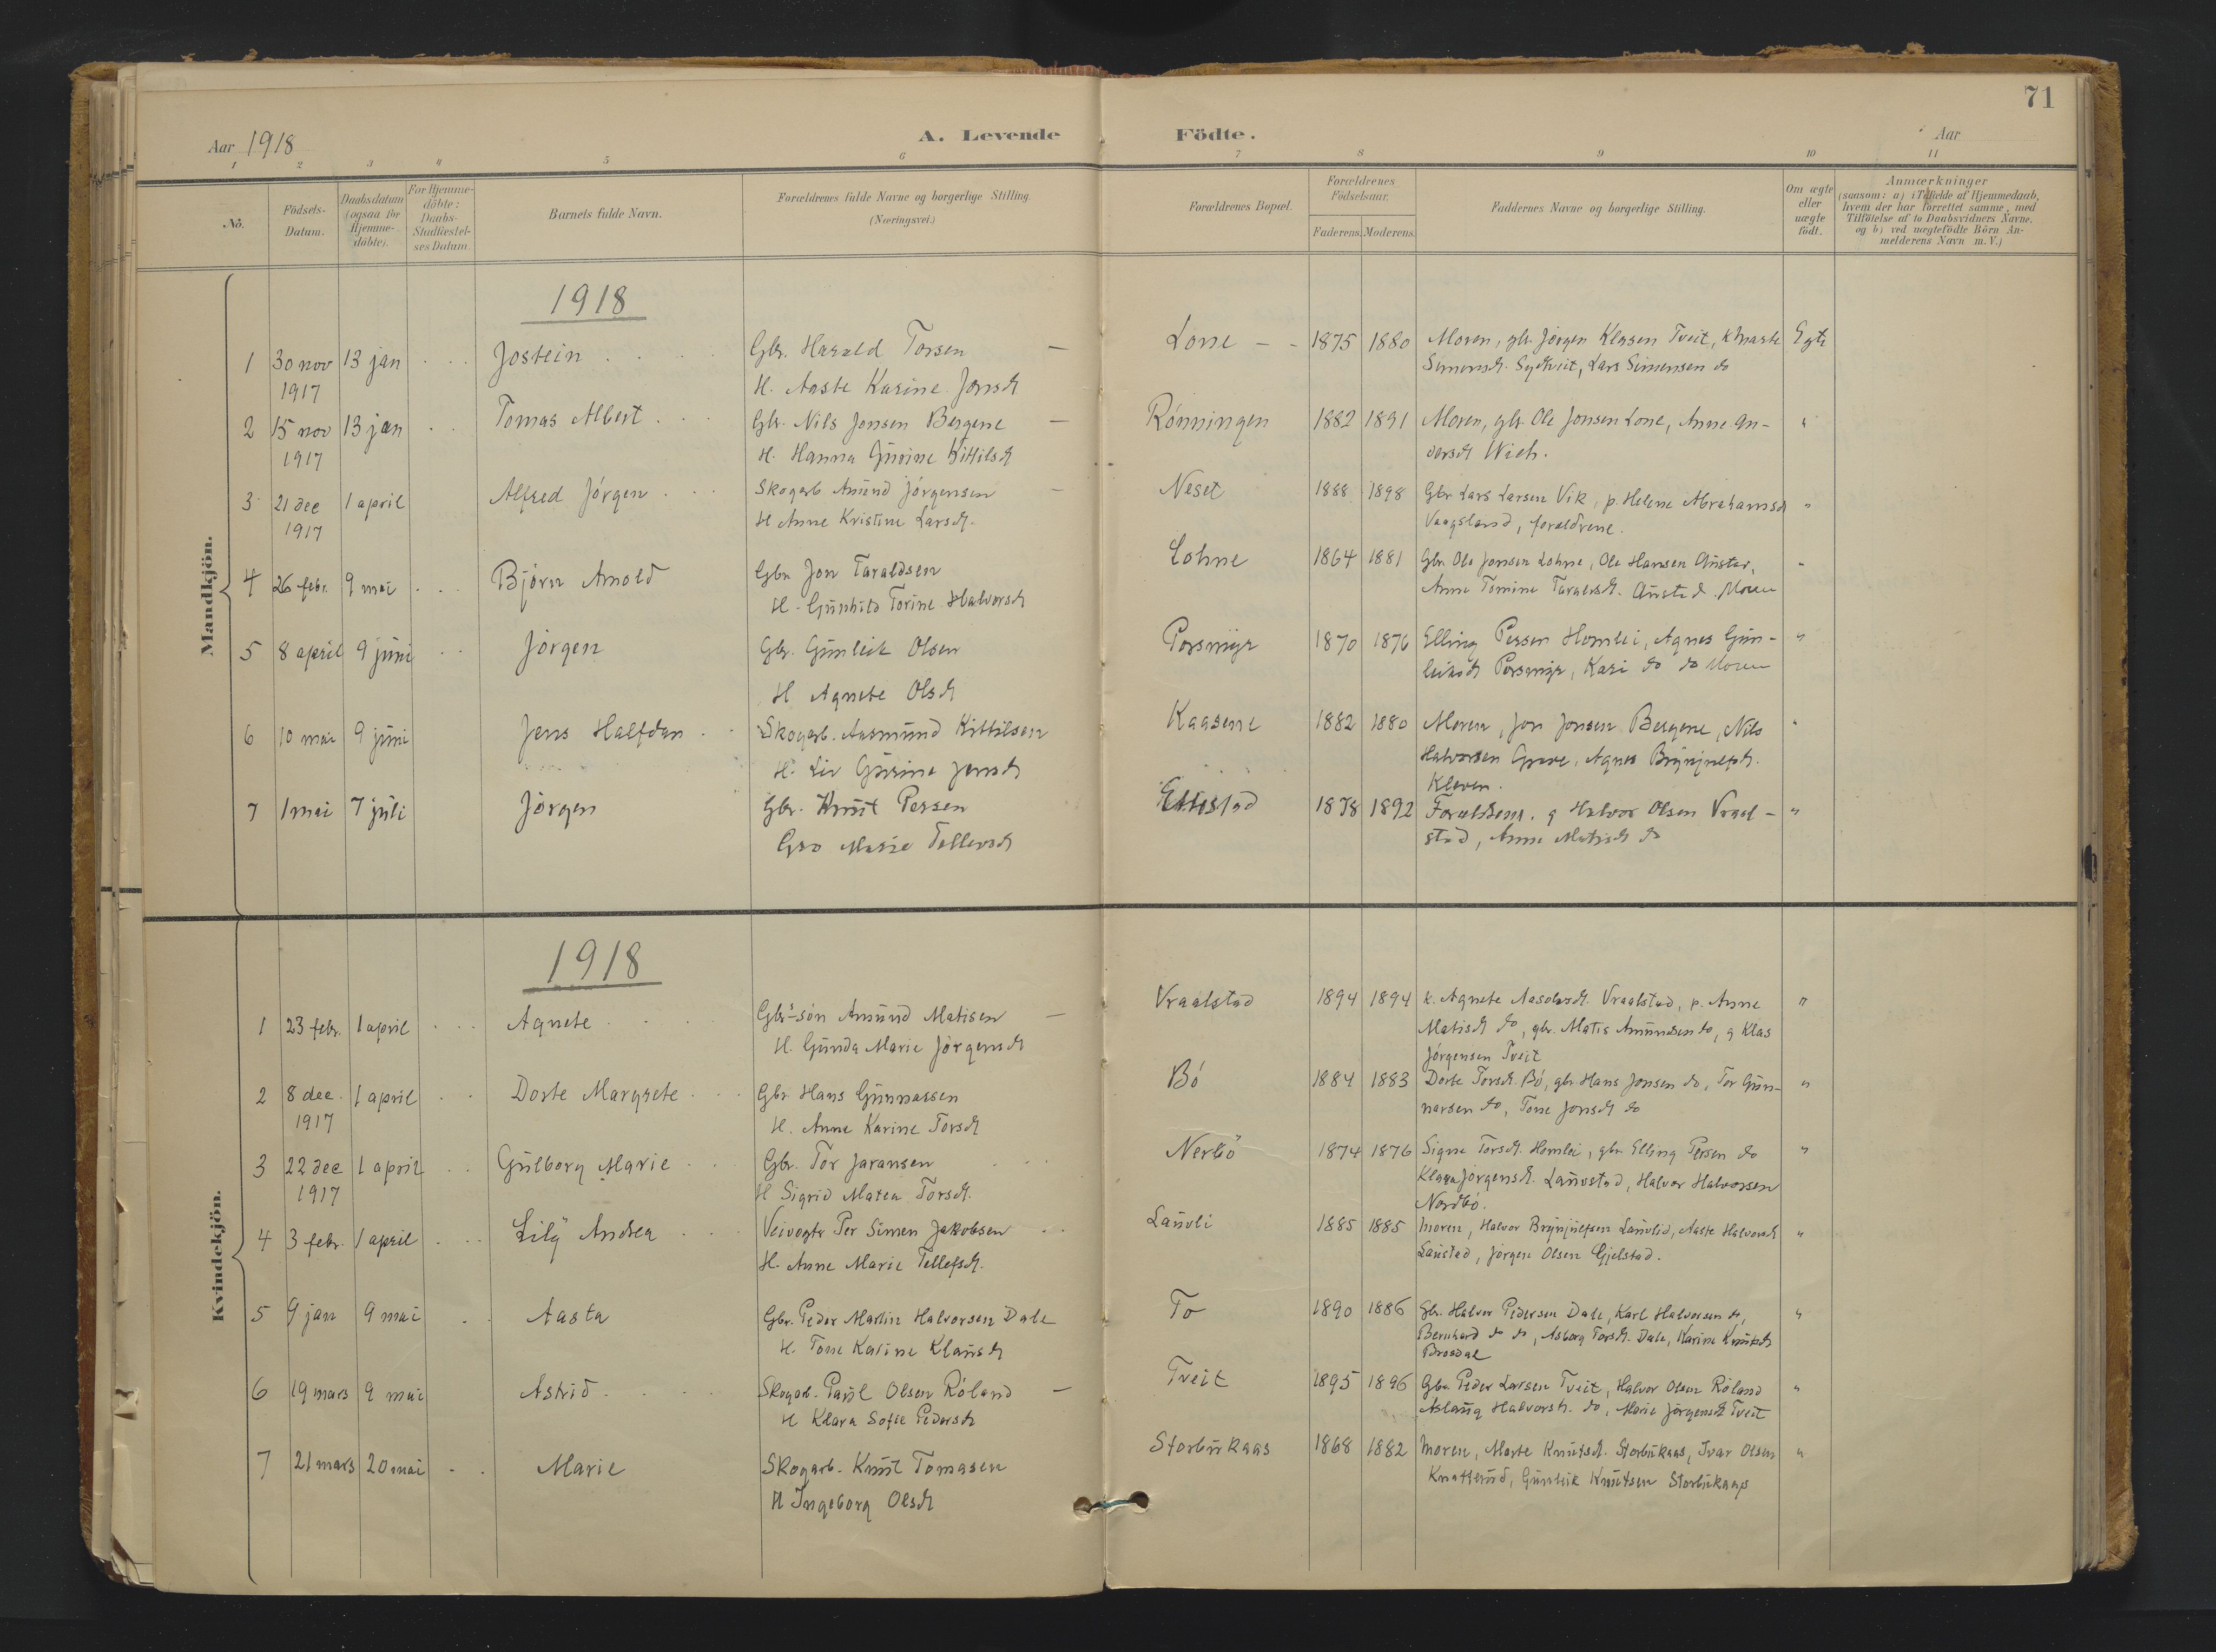 71
Aar 1918
A. Levende Födte.
Aar
1 2 3 4 5 6 7 8 9 10 11
No.
Födsels-
Datum.
Daabsdatum
(ogsaa for
Hjemme-
döbte).
For Hjemme-
döbte:
Daabs-
Stadfæstel-
ses Datum.
Barnets fulde Navn.
Forældrenes fulde Navne og borgerlige Stilling.
(Næringsvei.)
Forældrenes Bopæl.
Forældrenes
Födselsaar.
Faderens. Moderens.
Faddernes Navne og borgerlige Stilling.
Om ægte
eller
uægte
födt.
Anmærkninger
(saasom: a) i Tilfælde af Hjemmedaab,
hvem der har forrettet samme, med
Tilföielse af to Daabsvidners Navne,
og b) ved uægtefödte Börn An-
melderens Navn m. V.)
Mandkjön.
1918
1 30 nov 13 jan Jostein Gbr. Harald Torsen Lone 1875 1880 Moren, gbr. Jørgen Klasen Tveit, Egte
1917 H. Aaste Karine Jonsd Simensd. Lars Simensen do
2 15 nov 13 jan Tomas Albert Gbr. Nils Jonsen Bergene Rönningen 1882 1891 Moren, gbr. Ole Jonsen Lone, Anne An- "
1917 H. Hanna Gurine Kittilsd dersd Wieh.
3 21 dec 1 april Alfred Jörgen Skogarb Amund Jörgensen Neset 1888 1898 Gbr Lars Larsen Vik, p. Helene Abrahamsd "
1917 H Anne Kristine Larsd. Vaagsland, forældrene.
4 26 febr. 9 mai Björn Arnold Gbr Jon Taraldsen Lohne 1864 1881 Gbr. Ole Jonsen Lohne, Ole Hansen "
H. Gunhild Torine Halvorsd Anne Tomine Taraldsd. Austad. Moren
5 8 april 9 juni Jörgen Gbr. Gunleik Olsen Porsmyr 1870 1876 Elling Persen Homlei, Agnes Gun- "
H Agnete Olsd leiksd Porsmyr, Kari do do Moren
6 10 mai 9 juni Jens Halfdan Skogarb. Aasmund Kittilsen Kaasene 1882 1880 Moren, Jon Jonsen Bergene, Nils "
H. Liv Gurine Jensd Halvorsen Grave, Agnes Brynjulfsd.
Kleven.
7 1 mai 7 juli Jörgen Gbr. Knut Persen 1878 1892 Forældrene. g Halvor Olsen Vraal- "
Gro Marie Tellevsd stad, Anne Matisd do
Kvindekjön.
1918
1 23 febr. 1 april Agnete Gbr-sön Amund Matisen Vraalstad 1894 1894 k. Agnete Vraalstad, p. Anne "
H. Gunda Marie Jörgensd Matisd do, gbr. Matis Amundsen do, g Klas
Jörgensen Tveit
2 8 dec. 1 april Dorte Margrete Gbr Hans Gunnarsen Bö 1884 1883 Dorte Torsd. Bö, gbr Hans Jonsen do, Tor Gun- "
1917 H. Anne Karine Torsd narsen do, Tone Jonsd do
3 22 dec 1 april Gulborg Marie Gbr. Tor Jaransen Nerbö 1874 1876 Signe Torsd. Homlei, gbr. Elling Persen do "
1917 H Sigrid Matea Torsd. Klara Jörgensd. Lauvstad, Halvor Halvorsen
Nordbö.
4 3 febr. 1 april Lily Andrea Veivogter Per Simen Jakobsen Lauvli 1885 1885 Moren, Halvor Brynjulfsen Lauvlid, Aaste Halvorsd "
H. Anne Marie Tellefsd. Laustad, Jörgen Olsen Gjelstad.
5 9 jan 9 mai Aasta Gbr. Peder Martin Halvorsen Dale To 1890 1886 Gbr. Halvor Pedersen Dale, Karl Halvorsen do, "
H. Tone Karine Klausd Bernhard do do, Asborg Torsd. Dale, Karine Knutsd
Brosdal
6 19 mars 9 mai Astrid Skogarb. Paul Olsen Röland Tveit 1895 1896 Gbr Peder Larsen Tveit, Halvor Olsen Röland "
H Klara Sofie Pedersd Aslaug Halvorsd. do, Marie Jörgensd Tveit
7 21 mars 20 mai Marie Skogarb. Knut Tomasen Storbukaas 1868 1882 Moren, Marte Knutsd. Storbukaas, Ivar Olsen "
H Ingeborg Olsd Knatterud, Gunleik Knutsen Storbukaas